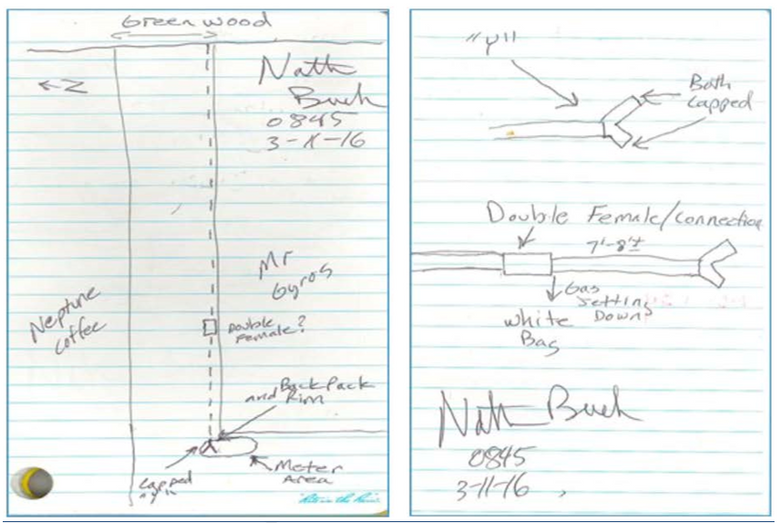 Greenwood
← N
Nath
Buch
0845
3-11-16
Mr
Gyros
Neptune
Coffee
Double
Female?
BackPack
and Rim
Capped
Meter
Area
Rite in the Rain
"Y"
Both
Capped
Double Female/Connection
7'-8'±
Gas
Setting
Down
White
Bag
Nath Buch
0845
3-11-16